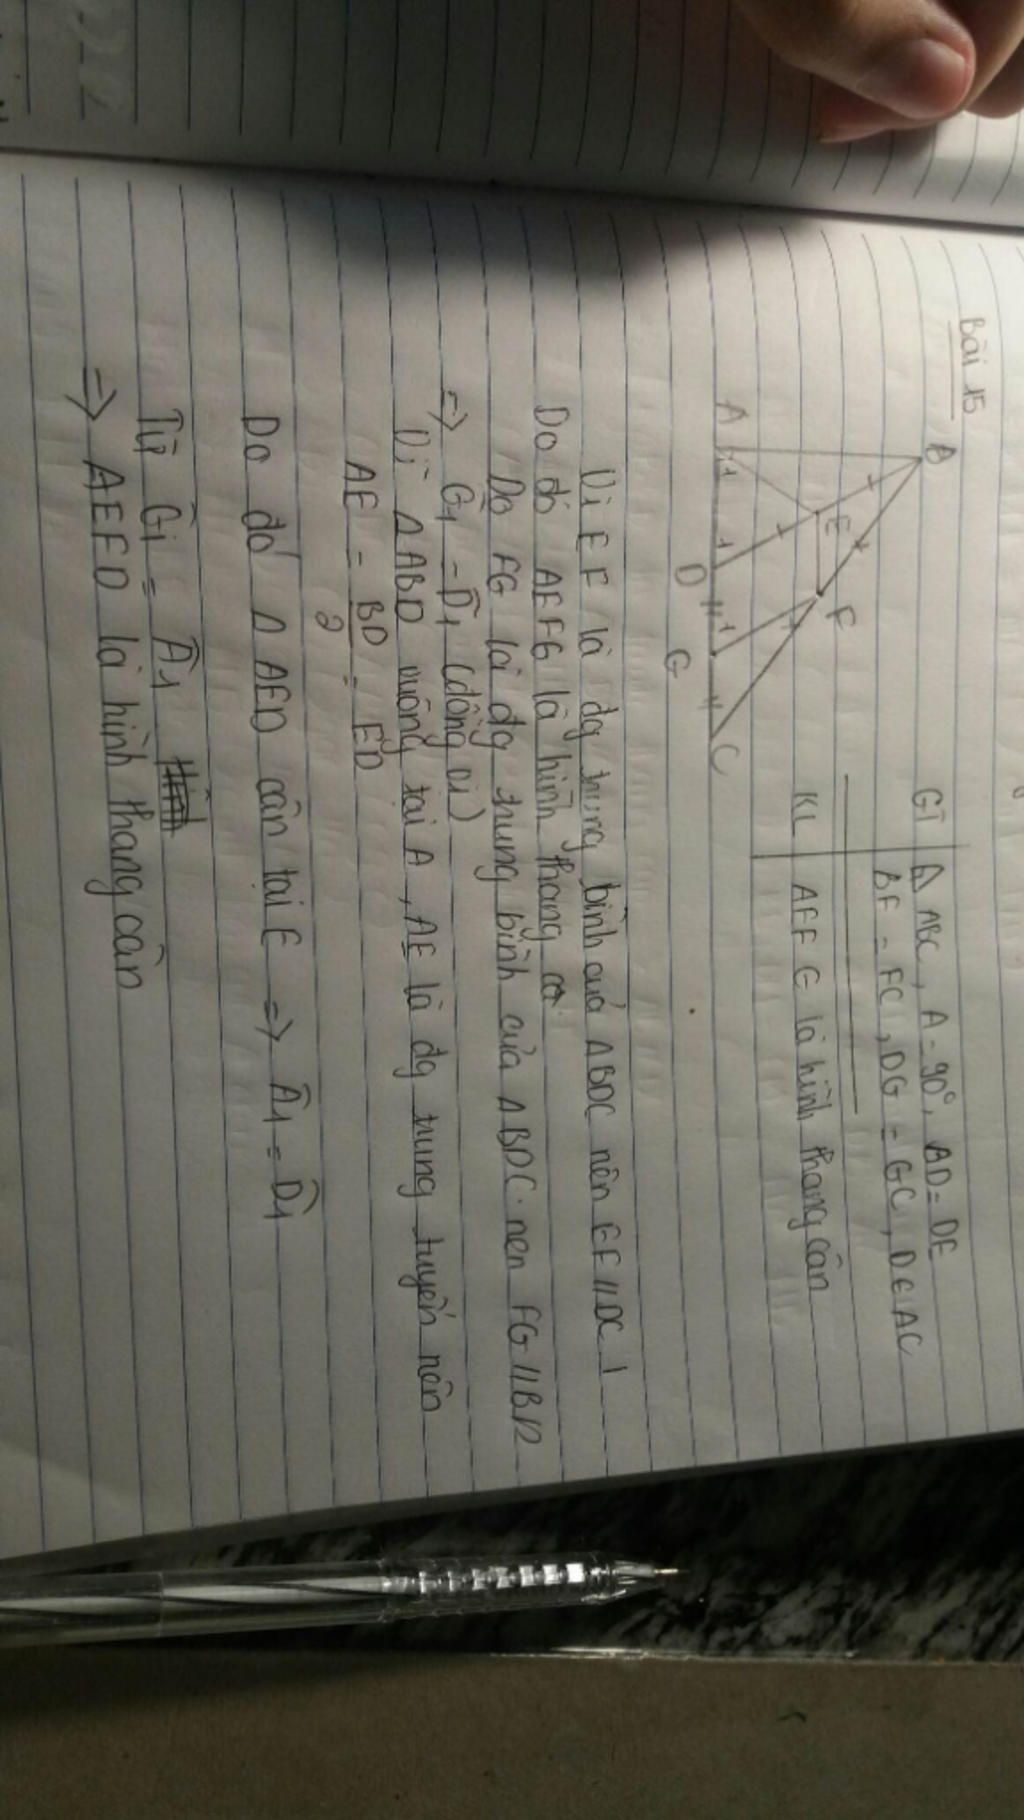 Bài 15
B
E
F
A
D
G
C
GT
Δ ABC, A = 90°, AD = DE
BF = FC, DG = GC, D ∈ AC
KL
AEFG là hình thang cân
Vì EF là đg trung bình của ΔBDC nên EF // DC
Do đó AEFG là hình thang
Do FG là đg trung bình của ΔBDC. nen FG // BD
=> Ĝ1 = D̂1 (đồng vị)
Vì ΔABD vuông tại A, AE là đg trung tuyến nên
AE = BD/2 = ED
Do đó Δ AED cân tại E => Â1 = D̂1
Từ Ĝ1 = Â1
=> AEFD là hình thang cân